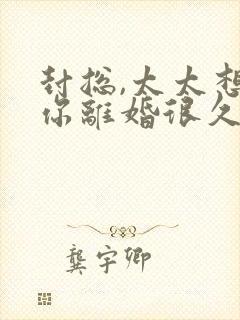 封总,太太想
你離婚很久
龔宇卿